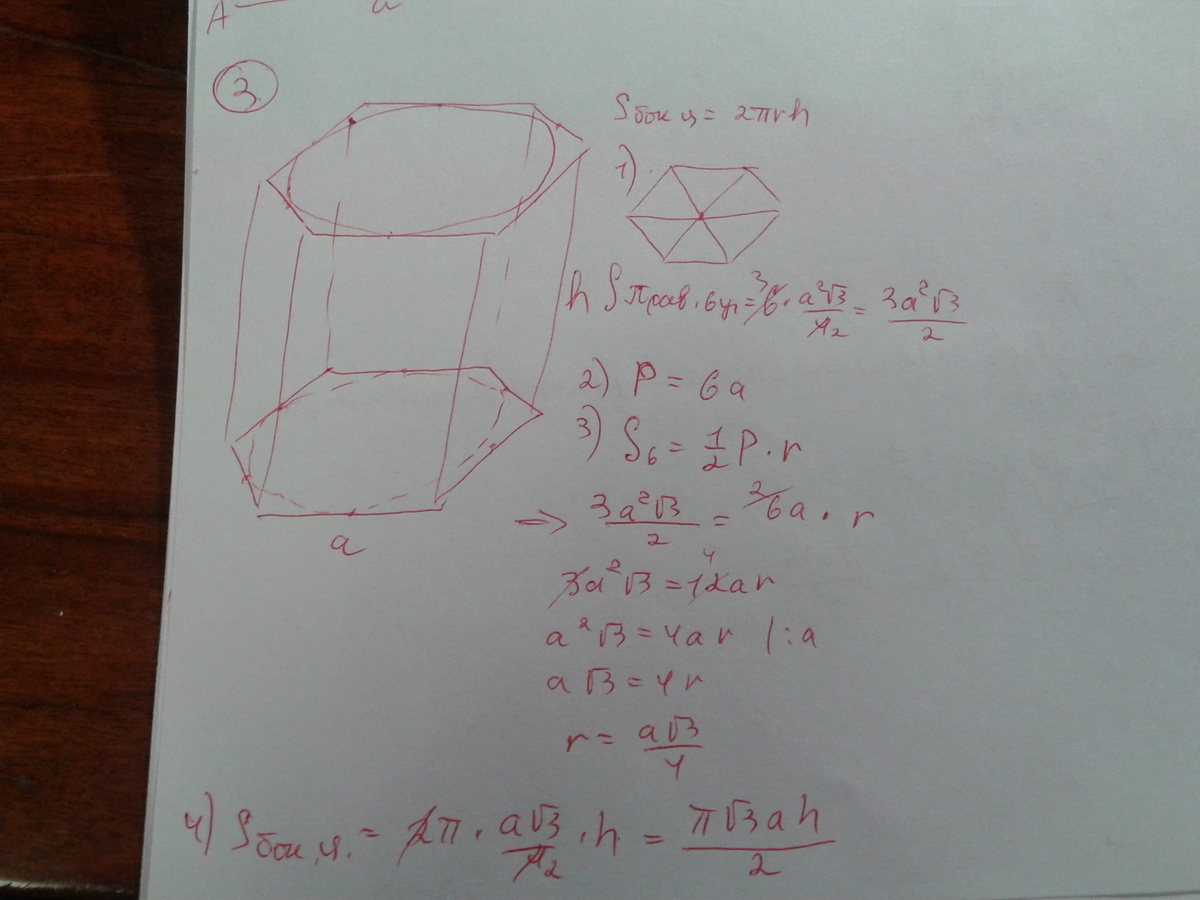 A a
3
S бок ц = 2πrh
1)
h S прав. 6уг = 6 3 · a²√3 / 4 2 = 3a²√3 / 2
2) P = 6a
3) S₆ = 1/2 P · r
a
⇒ 3a²√3 / 2 = 2 6a · r
3a²√3 = 12 4 ar
a²√3 = 4ar | : a
a√3 = 4r
r = a√3 / 4
4) S бок.ц. = 2π · a√3 / 4 2 · h = π√3ah / 2